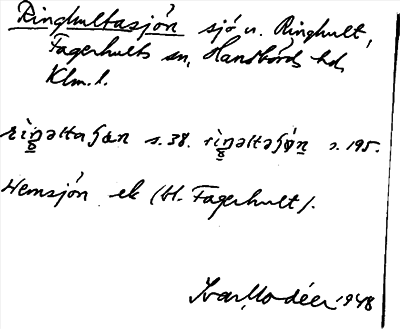 Ringhultasjön sjö v. Ringhult,
Fagerhults sn, Handbörds hd,
Klm. l.
s. 38. s. 195.
Hemsjön ek (tl. Fagerhult).
Ivar Modéer 1948